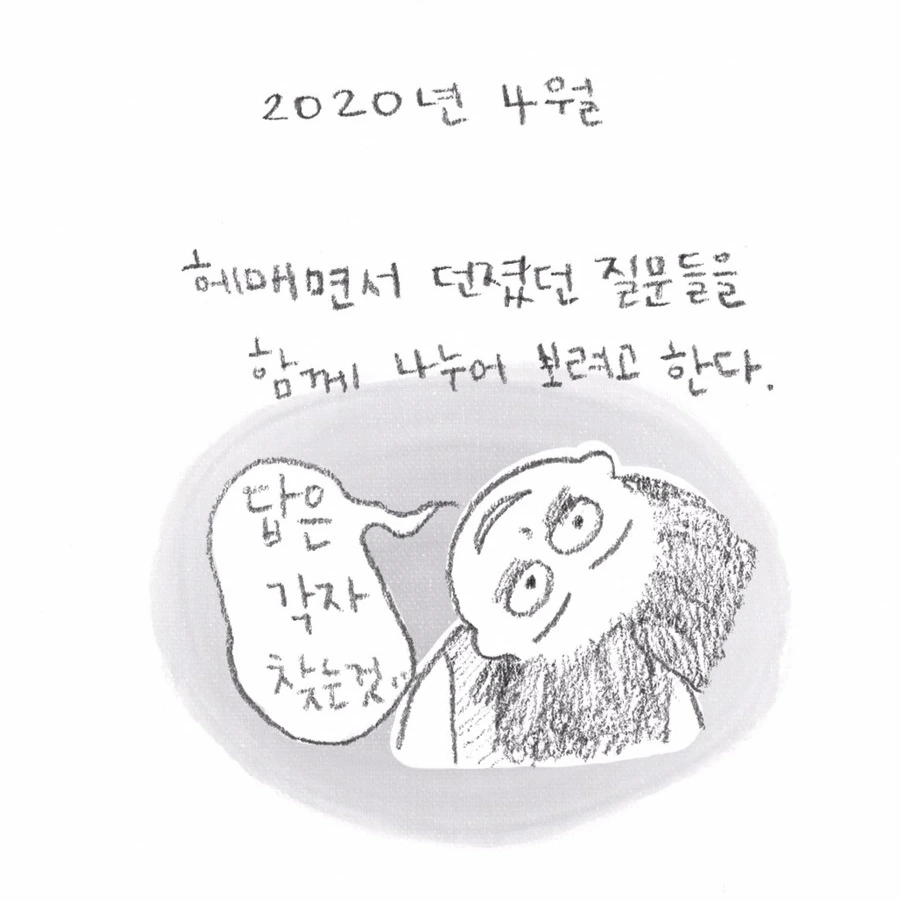 2020년 4월
헤매면서 던졌던 질문들을
함께 나누어 보려고 한다.
답은
각자
찾는것..